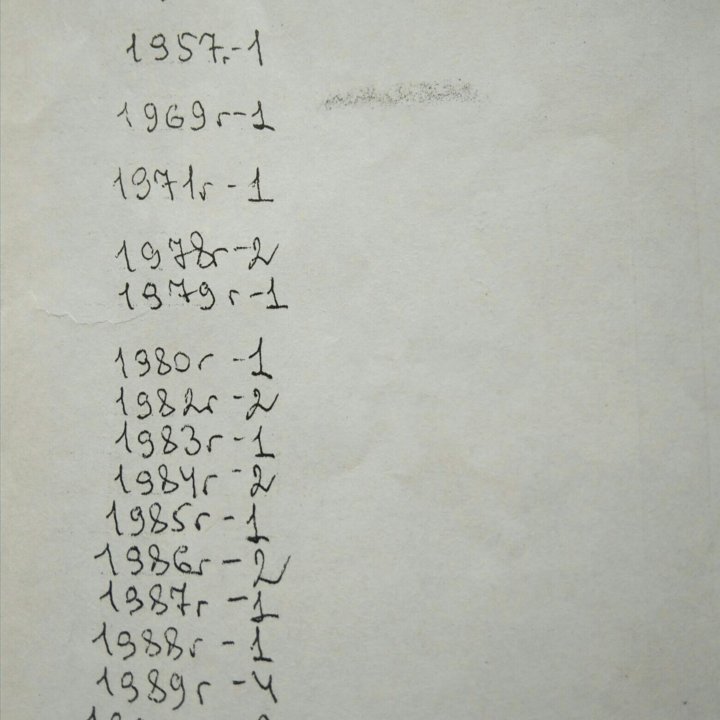 1957.-1
1969г-1
1971г-1
1978г-2
1979г-1
1980г-1
1982г-2
1983г-1
1984г-2
1985г-1
1986г-2
1987г-1
1988г-1
1989г-4